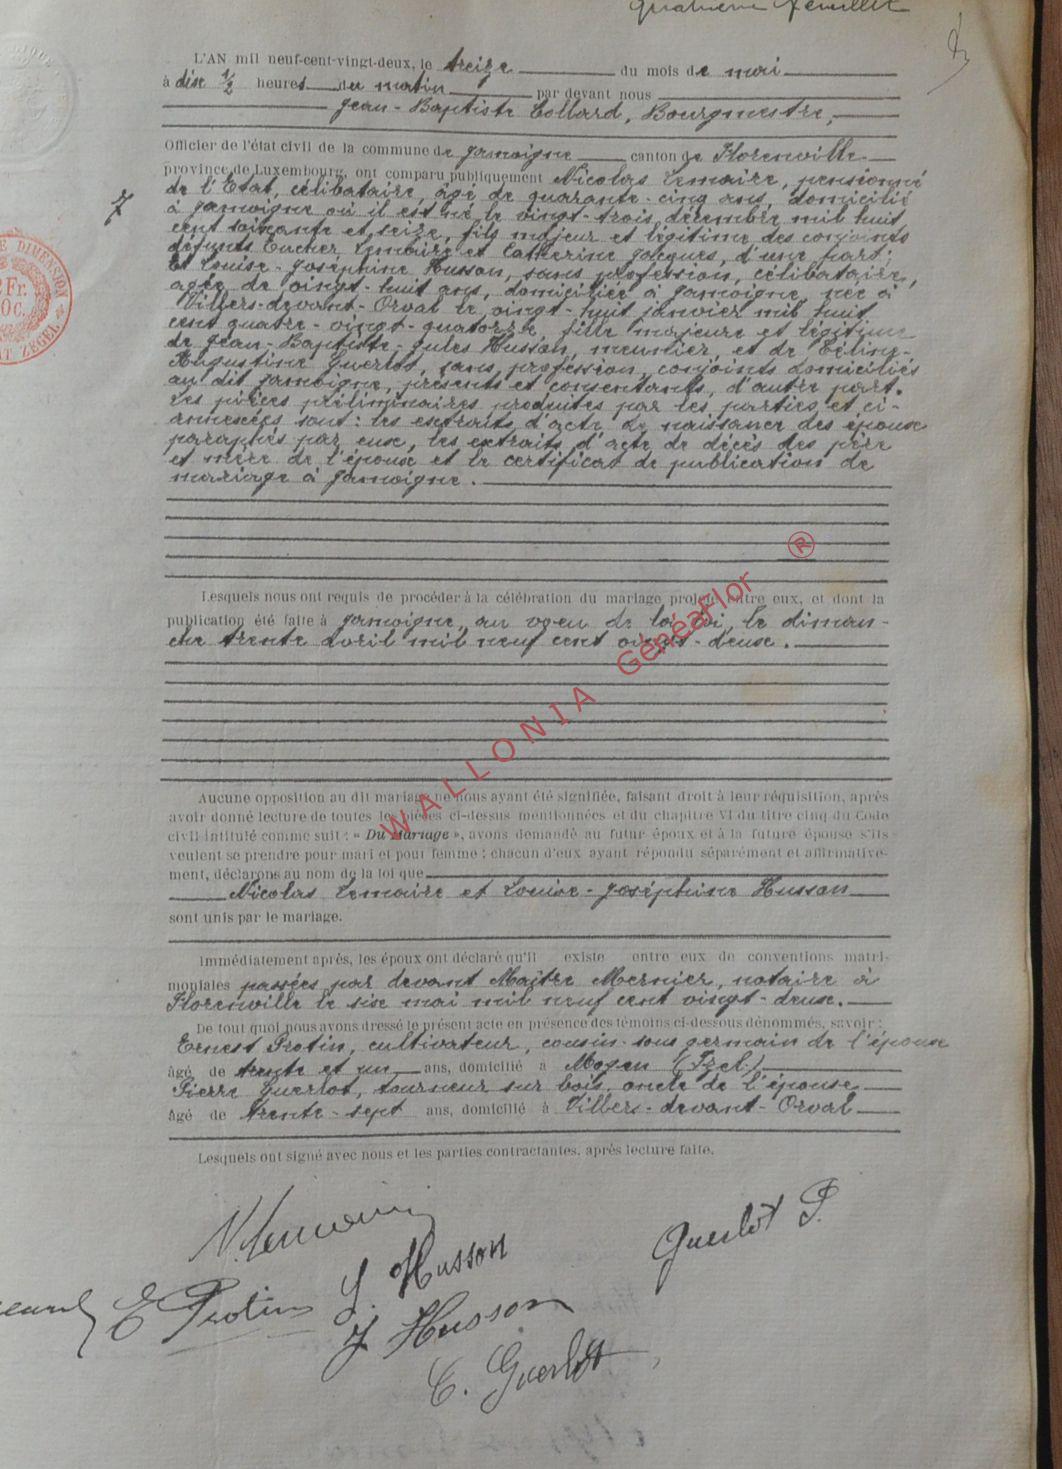 Quatrième feuillet
L'AN mil neuf-cent-vingt-deux, le treize du mois de mai
à dix 1/2 heures du matin par devant nous
Jean-Baptiste Collard, Bourgmestre,
Officier de l'état civil de la commune de Jamoigne canton de Florenville
province de Luxembourg, ont comparu publiquement Nicolas Lemaire, pensionné
7
de l'Etat, célibataire, âgé de quarante-cinq ans, domicilié
à Jamoigne où il est né le vingt-trois décembre mil huit
cent soixante et seize, fils majeur et légitime des conjoints
défunts Eucher Lemaire et Catherine Jacques, d'une part;
Et Louise-Joséphine Husson, sans profession, célibataire,
âgée de vingt-huit ans, domiciliée à Jamoigne, née à
Villers-devant-Orval le vingt-huit janvier mil huit
cent quatre-vingt-quatorze, fille majeure et légitime
de Jean-Baptiste-Jules Husson, meunier, et de Céline-
Augustine Guerlot, sans profession, conjoints domiciliés
au dit Jamoigne, présents et consentants, d'autre part.
Les pièces préliminaires produites par les parties et ci-
annexées sont: les extraits d'acte de naissance des époux
paraphés par eux, les extraits d'acte de décès des père
et mère de l'époux et le certificat de publication de
mariage à Jamoigne.
Lesquels nous ont requis de procéder à la célébration du mariage projeté entre eux, et dont la
publication été faite à Jamoigne, au voeu de la loi, le diman-
che trente avril mil neuf cent vingt-deux.
WALLONIA GénéaFlor ®
Aucune opposition au dit mariage ne nous ayant été signifiée, faisant droit à leur réquisition, après
avoir donné lecture de toutes les pièces ci-dessus mentionnées et du chapitre VI du titre cinq du Code
civil intitulé comme suit : « Du Mariage », avons demandé au futur époux et à la future épouse s'ils
veulent se prendre pour mari et pour femme : chacun d'eux ayant répondu séparément et affirmative-
ment, déclarons au nom de la loi que
Nicolas Lemaire et Louise-Joséphine Husson
sont unis par le mariage.
Immédiatement après, les époux ont déclaré qu'il existe entre eux de conventions matri-
moniales passées par devant Maître Mernier, notaire à
Florenville le six mai mil neuf cent vingt-deux.
De tout quoi nous avons dressé le présent acte en présence des témoins ci-dessous dénommés, savoir :
Ernest Protin, cultivateur, cousin sous germain de l'épouse
âgé de trente et un ans, domicilié à Moyen (Izel)
Pierre Guerlot, tourneur sur bois, oncle de l'épouse
âgé de trente-sept ans, domicilié à Villers-devant-Orval
Lesquels ont signé avec nous et les parties contractantes, après lecture faite.
N. Lemaire
Guerlot P.
L. Husson
E Protin
J. Husson
C. Guerlot